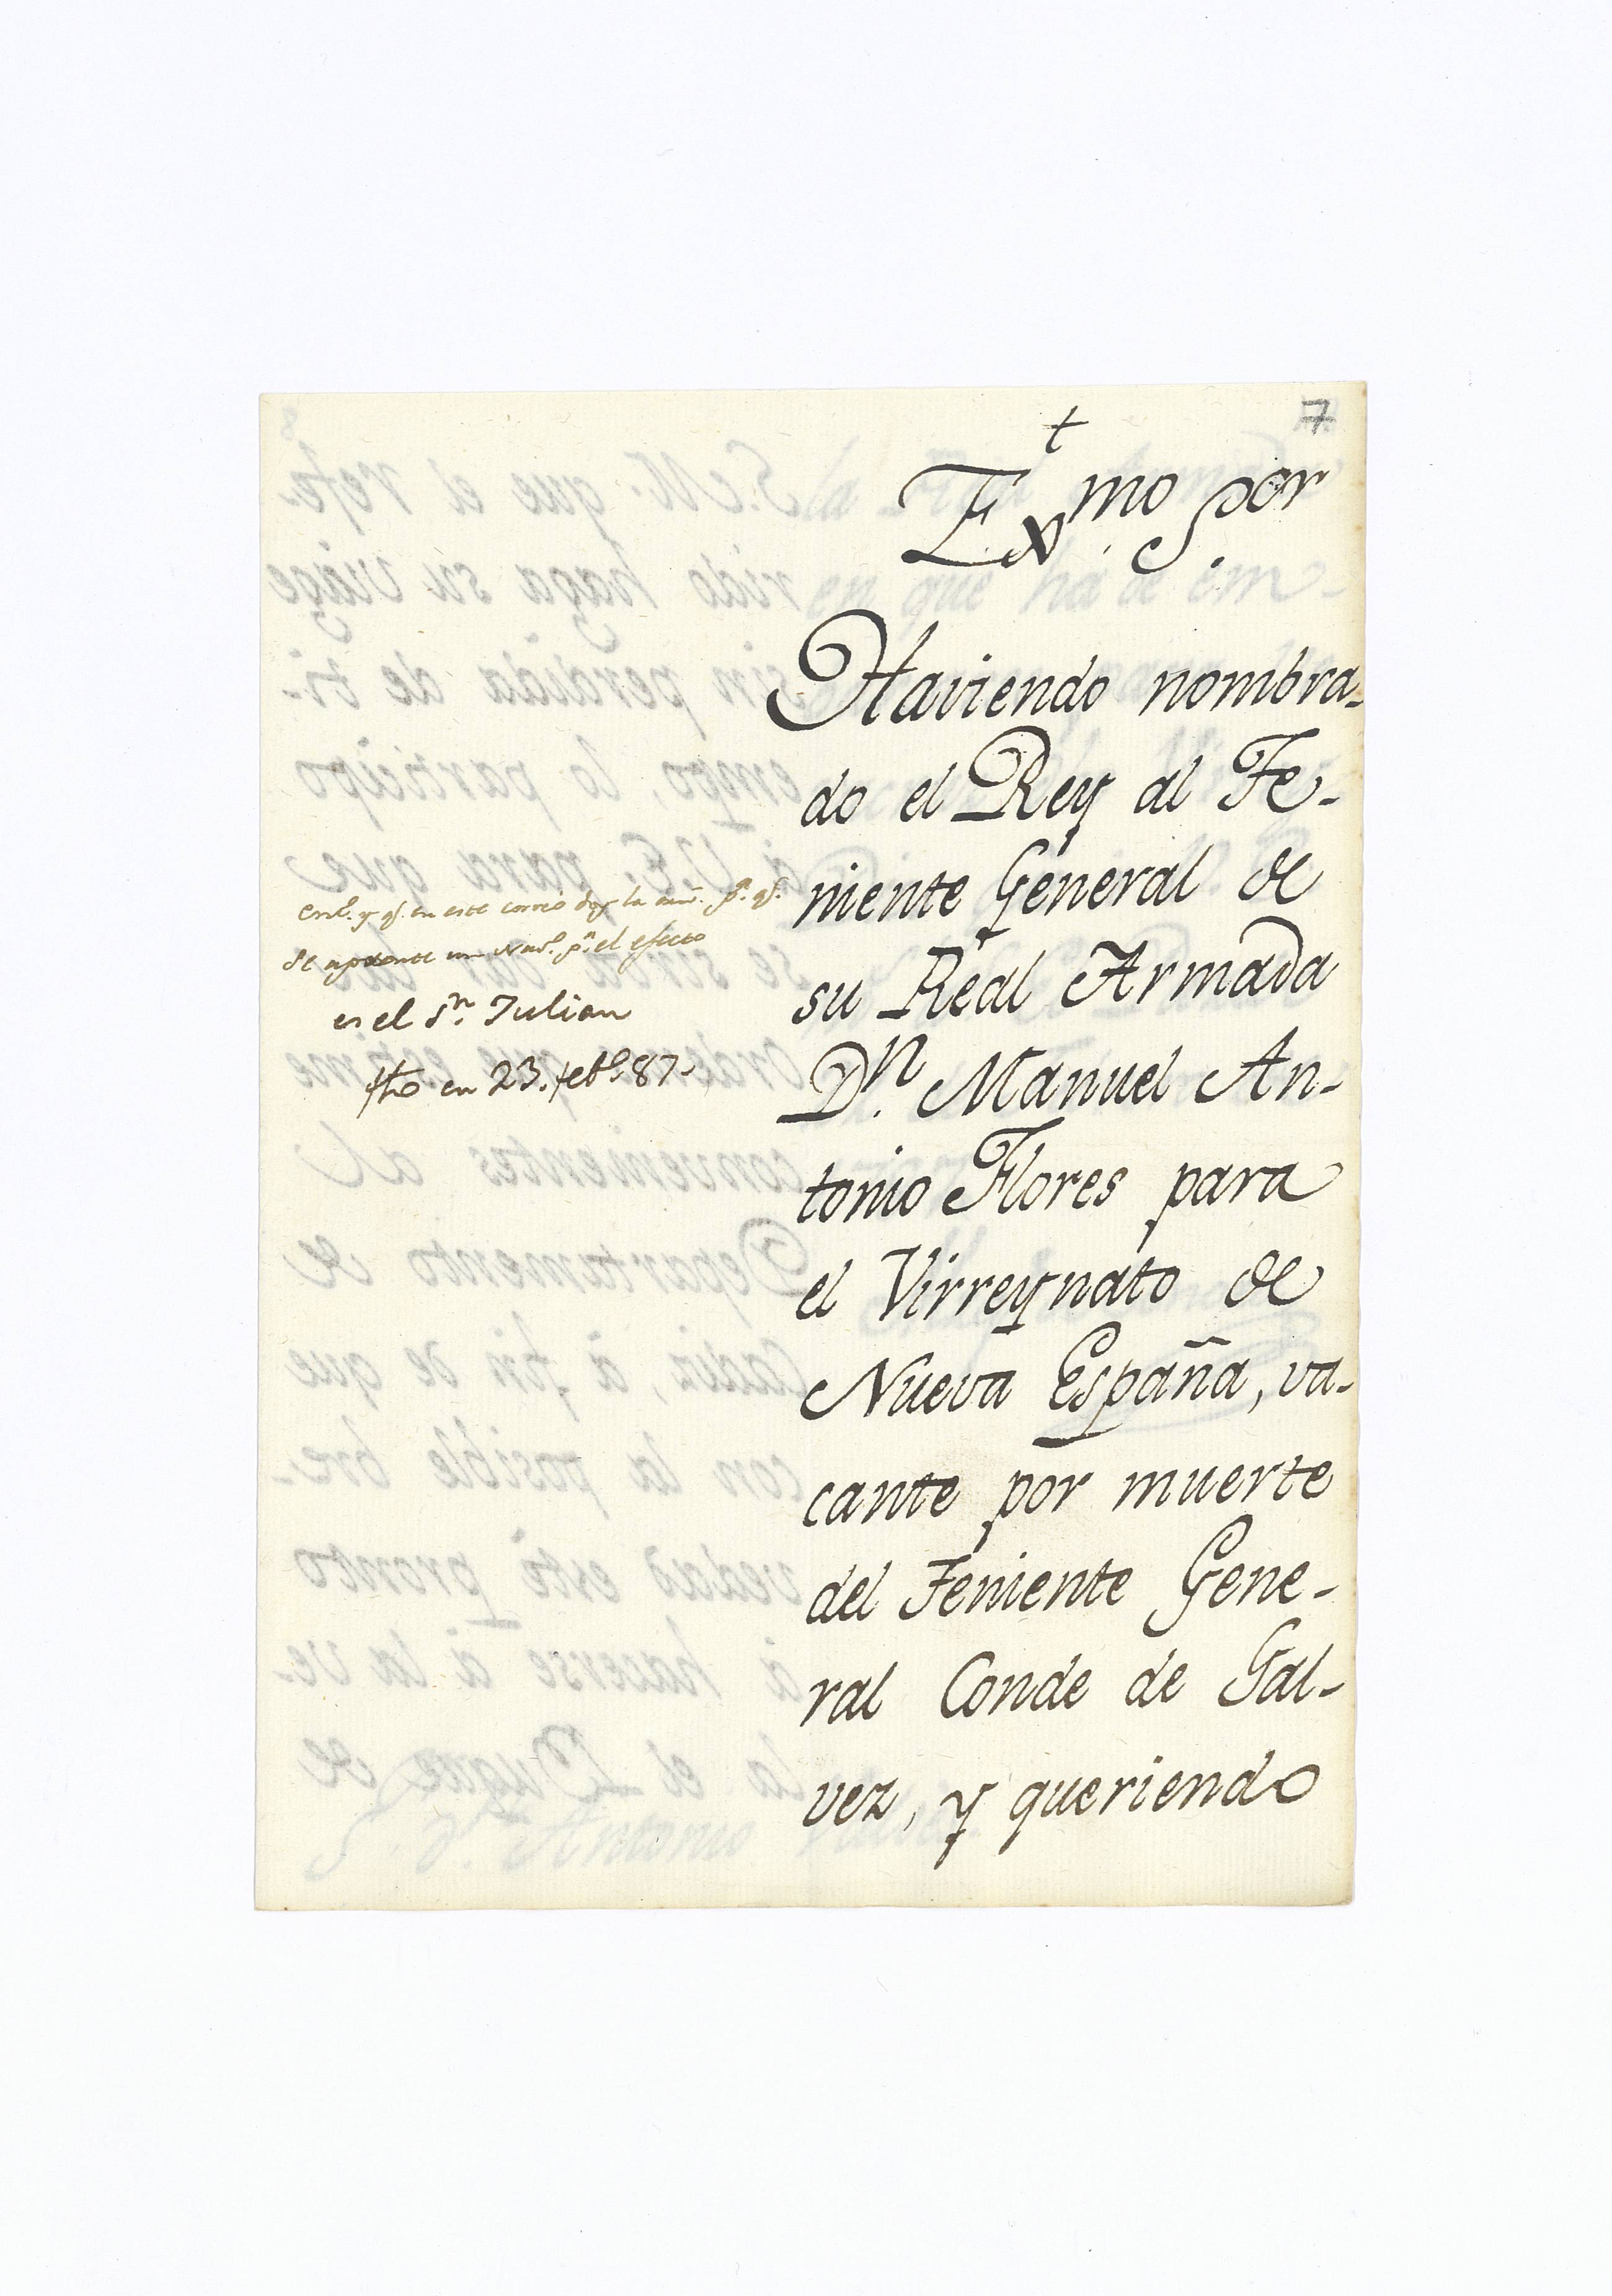 7
†
Exmo Sor
Haviendo nombra-
do el Rey al Te-
niente General de
su Real Armada
Dn. Manuel An-
tonio Flores para
el Virreynato de
Nueva España, va-
cante por muerte
del Teniente Gene-
ral Conde de Gal-
vez, y queriendo
y qe. en este correo doy la pa. qe.
se apronte un pa. el efecto
es el Sn. Julian
fho en 23. feb.o 87.